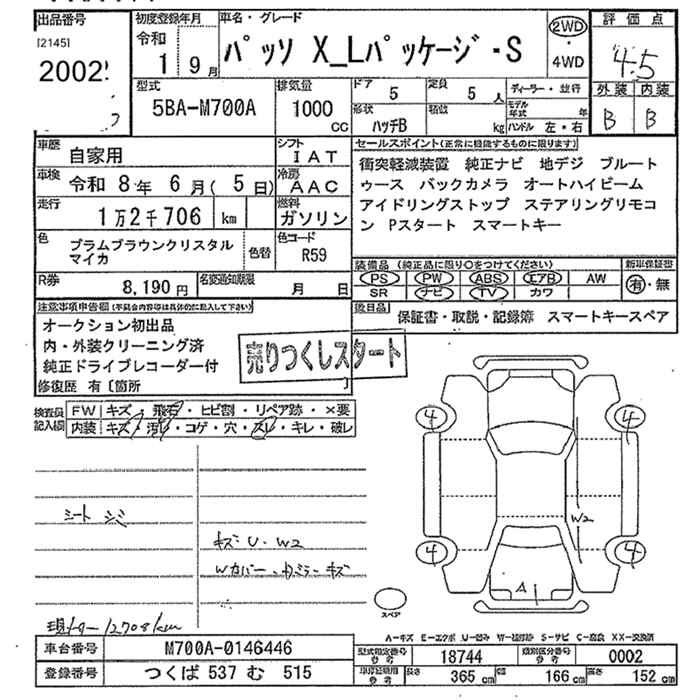 出品番号 初度登録年月 車名・グレード 評価点
[2145] 令和
2002 1 9月 パッソ X_Lパッケージ・S 2WD・4WD 4.5
型式 排気量 ドア 定員 ディーラー・並行 外装 内装
5BA-M700A 1000cc 5 5人 モデル年式 年 B B
形状 積数
ハッチB kg ハンドル 左・右
車歴 自家用 シフト IAT セールスポイント(正常に機能するものに限ります)
車検 令和 8年 6月(5日) 冷房 AAC 衝突軽減装置 純正ナビ 地デジ ブルート
走行 1万2千706 km 燃料 ガソリン ゥース バックカメラ オートハイビーム
アイドリングストップ ステアリングリモコ
色 プラムブラウンクリスタル 色替 色コード R59 ン Pスタート スマートキー
マイカ
装備品 (純正品に限り○をつけてください) 新車保証書
R券 8,190円 名変通知期限 月 日 PS PW ABS エアB AW 有・無
SR ナビ TV カワ
注意事項申告欄(不具合内容等は具体的に記入して下さい) 後日品 保証書・取説・記録簿 スマートキースペア
オークション初出品
内・外装クリーニング済
純正ドライブレコーダー付
売りつくしスタート
修復歴 有〔箇所 〕
検査員記入欄 FW キズ・飛石・ヒビ割・リペア跡・×要
内装 キズ・汚レ・コゲ・穴・スレ・キレ・破レ
4 4
シート シミ
W2
キズ U・W2
Wカバー・カメラ・キズ
4 4
A
スペア
現メーター 12708km
A-キズ E-エクボ U-凹み W-補修跡 S-サビ C-腐食 XX-交換済
車台番号 M700A-0146446 型式指定番号 参考 18744 類別区分番号 参考 0002
登録番号 つくば 537 む 515 長さ 365cm 幅 166cm 高さ 152cm